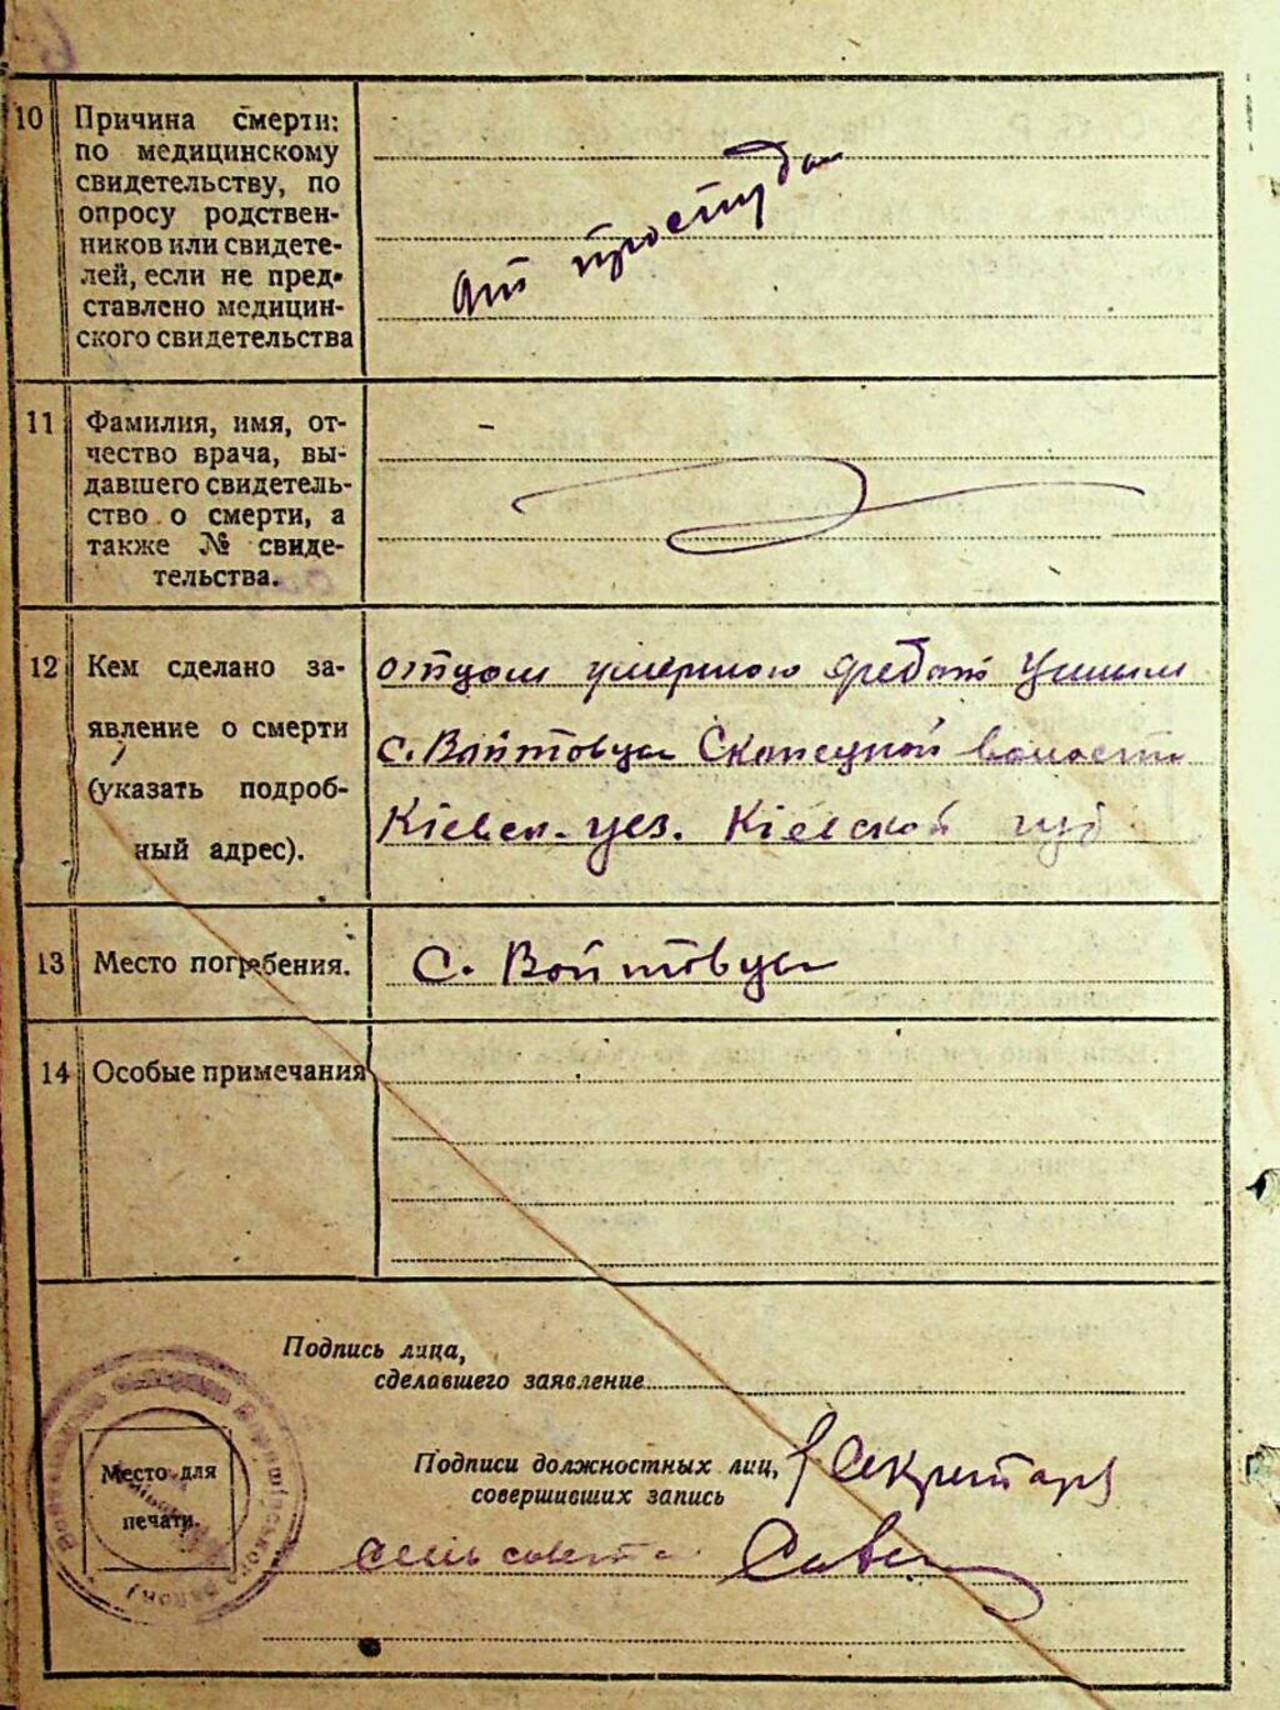 10 Причина смерти:
по медицинскому
свидетельству, по
опросу родствен-
ников или свидете-
лей, если не пред-
ставлено медицин-
ского свидетельства
от простуда
11 Фамилия, имя, от-
чество врача, вы-
давшего свидетель-
ство о смерти, а
также № свиде-
тельства.
-
12 Кем сделано за-
явление о смерти
(указать подроб-
ный адрес).
отцом умершою
с. Войтовцы волости
Кіевск. уез. Кіевской губ
13 Место погребения.
с. Войтовцы
14 Особые примечания
Подпись лица,
сделавшего заявление
Подписи должностных лиц,
совершивших запись
Секретарь
сельсовета
Место для
печати.